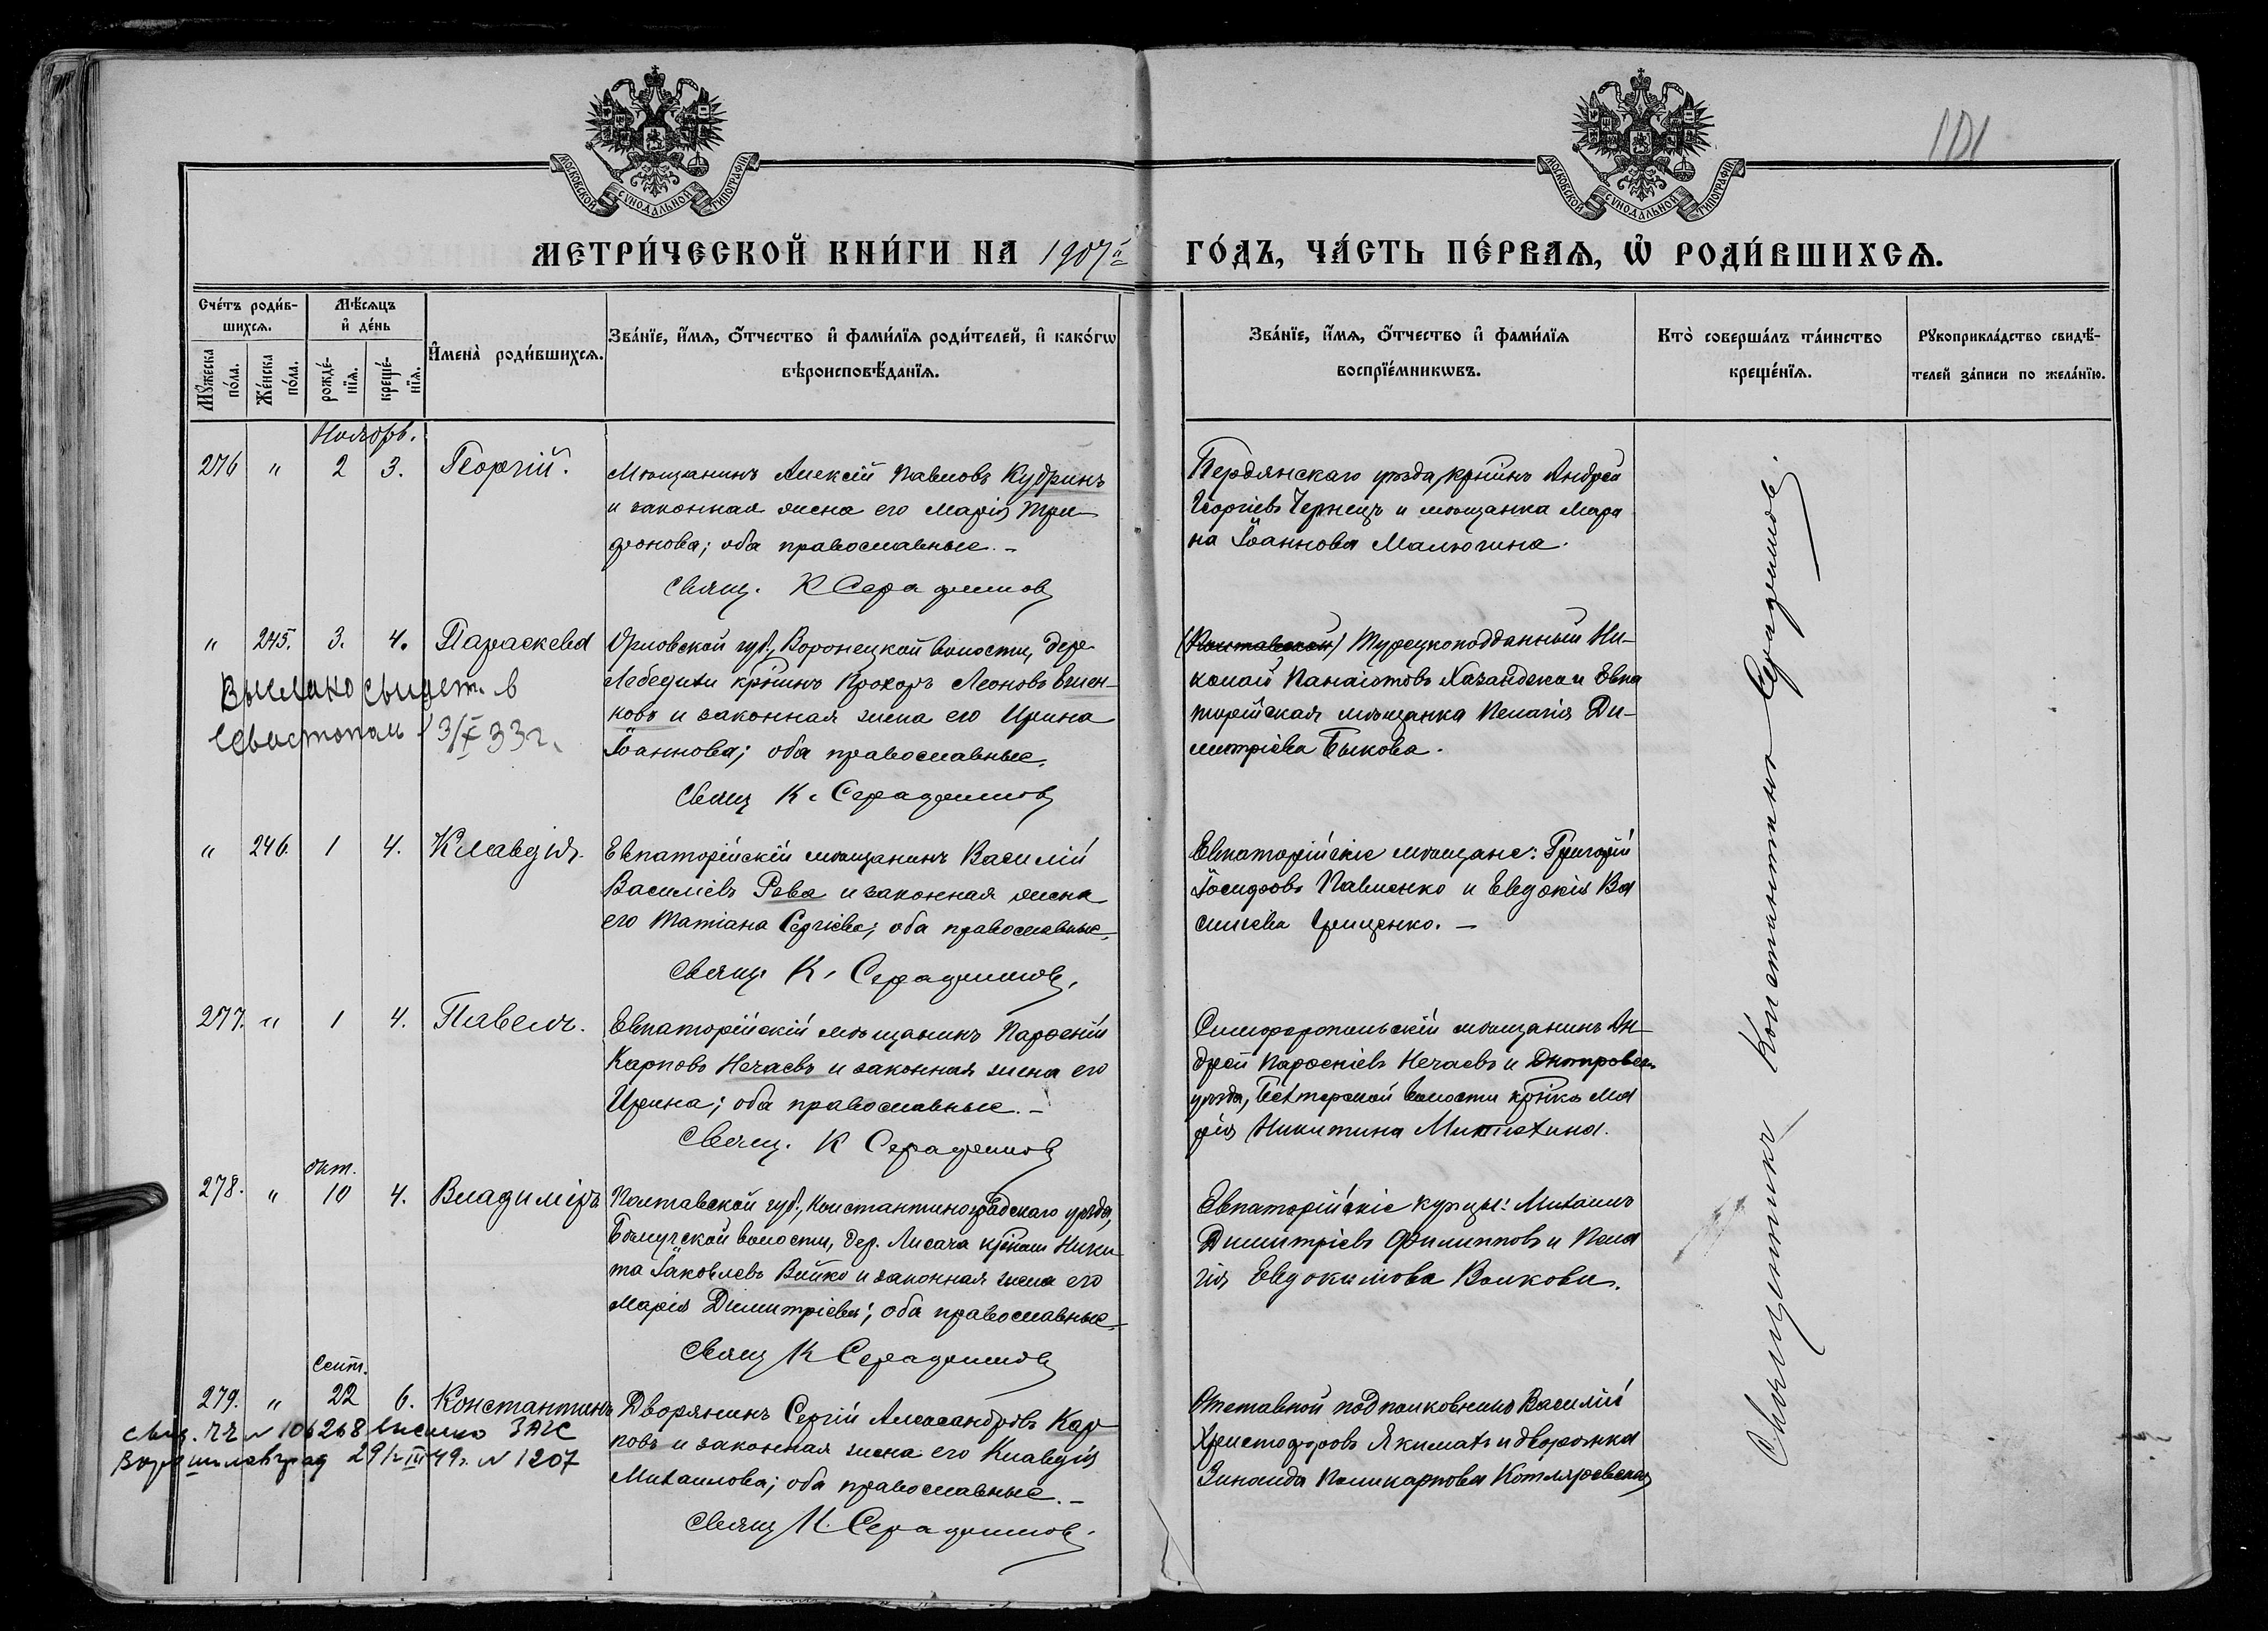 101
МОСКОВСКОЙ СѴНОДАЛЬНОЙ ТИПОГРАФІИ
МОСКОВСКОЙ СѴНОДАЛЬНОЙ ТИПОГРАФІИ
МЕТРИ́ЧЕСКОЙ КНИ́ГИ НА 1907й
ГО́ДЪ, ЧА́СТЬ ПЕ́РВАѦ, Ѡ҆ РОДИ́ВШИХСѦ.
Сче́тъ роди́в-
шихсѧ.
Мꙋ́жеска по́ла.
Же́нска по́ла.
Мѣ́сяцъ
и҆ де́нь
рожде́-
нїѧ.
креще́-
нїѧ.
И҆мена̀ роди́вшихсѧ.
Зва́нїе, и҆́мѧ, ѻ҆́тчество и҆ фами́лїѧ роди́телей, и҆ како́гѡ
вѣроисповѣ́данїѧ.
Зва́нїе, и҆́мѧ, ѻ҆́тчество и҆ фами́лїѧ
воспрїе́мникѡвъ.
Кто̀ соверша́лъ та́инство
креще́нїѧ.
Рꙋкоприкла́дство свидѣ́-
телей за́писи по жела́нїю.
Ноябрь.
276 " 2 3. Георгій.
Мѣщанинъ Алексій Павловъ Кудринъ
и законная жена его Марія Три-
фонова; оба православные. –
Свящ. К Серафимовъ
Бердянскаго уѣзда, кр-нинъ Андрей
Георгіевъ Чернецъ и мѣщанка Мари
на Іоаннова Малюгина.
" 245. 3. 4. Параскева
Выслано свидет. в
Севастополь 3/X 33 г.
Орловской губ., Воронецкой волости, дер.
Лебедихи кр-нинъ Прохоръ Леоновъ
ковъ и законная жена его Ирина
Іоаннова; оба православные.
Свящ К. Серафимовъ
(Полтавской) Турецкоподданный Ни-
колай Панаіотовъ и Евпа
торійская мѣщанка Пелагія Ди-
митріева Быкова.
" 246. 1 4. Клавдія.
Евпаторійскій мѣщанинъ Василій
Василіевъ Рева и законная жена
его Татіана Сергіева; оба православные.
Свящ. К. Серафимовъ.
Евпаторійскіе мѣщане: Григорій
Іосифовъ Павленко и Евдокія Ва
силіева Грищенко. –
277. " 1 4. Павелъ.
Евпаторійскій мѣщанинъ Парѳеній
Карповъ Нечаевъ и законная жена его
Ирина; оба православные. –
Свящ. К Серафимовъ
Симферопольскій мѣщанинъ Ан-
дрей Парѳеніевъ Нечаевъ и Днѣпровск.
уѣзда, волости кр-нка Ма
рія Никитина
окт.
278. " 10 4. Владиміръ
Полтавской губ., Константиноградскаго уѣзда,
волости, дер. Лисача Ники-
та Іаковлевъ Бойко и законная жена его
Марія Димитріева; оба православные.
Свящ К Серафимовъ
Евпаторійскіе купцы: Михаилъ
Димитріевъ Филипповъ и Пела
гія Евдокимова Волкова.
Сент.
279. " 22 6. Константинъ
свид. ЧЧ N 106268 выслано ЗАГС
Ворошиловград 29/III 49 г. N 1207
Дворянинъ Сергій Александровъ Кар-
повъ и законная жена его Клавдія
Михаилова; оба православные. –
Свящ К. Серафимовъ.
Отставной подполковникъ Василій
Христофоровъ Якимахъ и дворянка
Зинаида Поликарпова Котляревская
Священникъ Константинъ Серафимовъ.